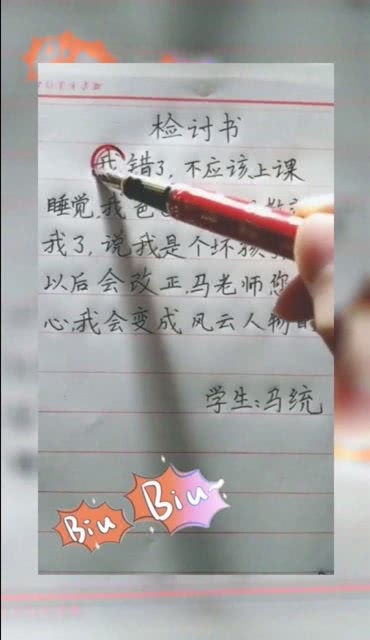 检讨书
我错了，不应该上课
睡觉，我爸
我了，说我是个坏孩
以后会改正，马老师您
心，我会变成风云人物
学生：马统
Biu
Biu